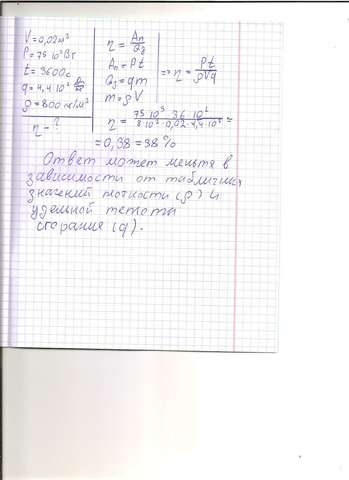 V = 0,02 м³
P = 75·10³ Вт
t = 3600 с
q = 4,4·10⁷ Дж/кг
ρ = 800 кг/м³
η - ?
η = Aп/Qз
Aп = Pt
Qз = qm
m = ρV
=> η = Pt/ρVq
η = 75·10³·36·10²/8·10²·0,02·4,4·10⁷ =
= 0,38 = 38 %
Ответ может меняться в
зависимости от табличных
значений плотности (ρ) и
удельной теплоты
сгорания (q).